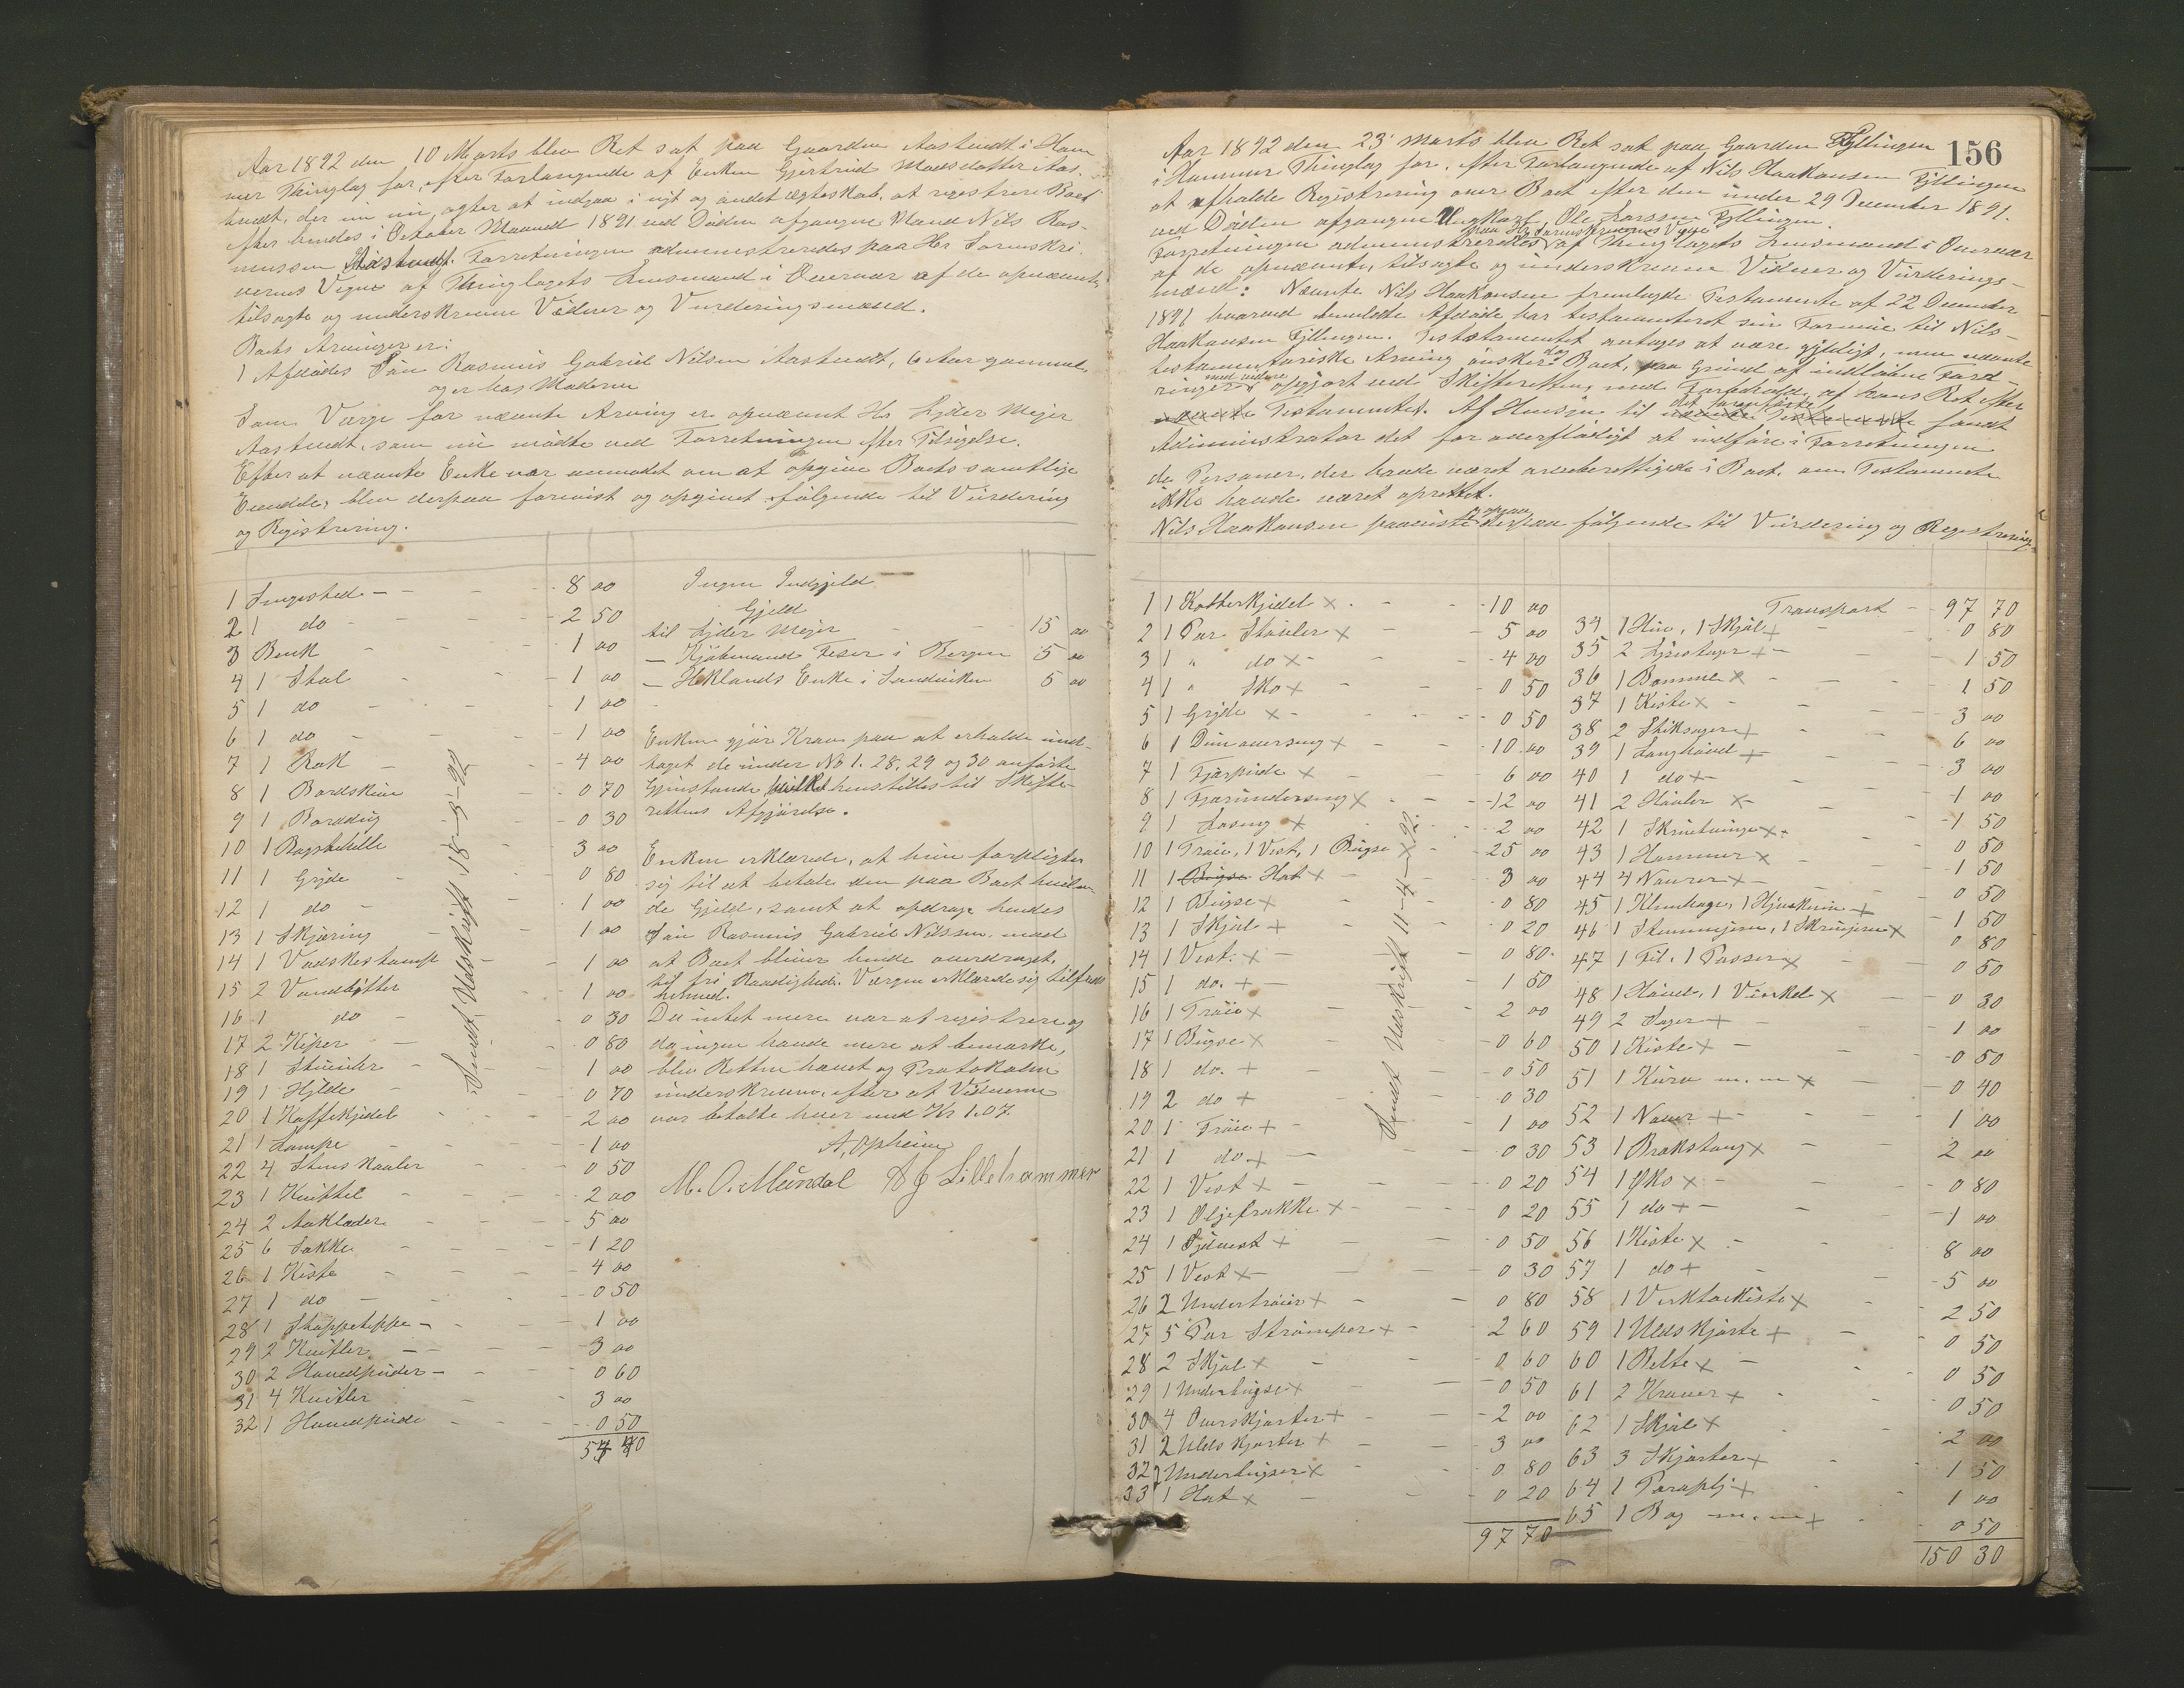 Aar 1892 den 10 Marts blev Ret sat paa Gaarden Aastvedt i Ham
mer Thinglag for, efter Forlangende af Enken Gjertrud Madsdatter Aas-
tvedt, der nu agter at indgaa i nyt og andet ægteskab, at registrere Boet
efter hendes i October Maaned 1891 ved Døden afgangne Mand Nils Ras-
mussen Aastvedt. Forretningen administreredes paa Hr Sorenskri
verens Vegne af Thinglagets Lensmand i Overvær af de opnævnte,
tilsagte og underskrevne Vidner og Vurderingsmænd.
Boets Arvinger er:
1 Afdødes Søn Rasmus Gabriel Nilsen Aastvedt, 6 Aar gammel,
og er hos Moderen
Som Værge for nævnte Arving er opnævnt Hr Lyder Mejer
Aastvedt, som nu mødte ved Forretningen efter Tilsigelse.
Efter at nævnte Enke var anmodet om at opgive Boets samtlige
Eiendele, blev derpaa forevist og opgivet følgende til Vurdering
og Registrering.
1 Sengested - 8 00
2 1 do - 2 50
3 Benk - 1 00
4 1 Stol - 1 00
5 1 do - 1 00
6 1 do - 1 00
7 1 Rok - 4 00
8 1 Bordskive 0 70
9 1 Borddug 0 30
10 1 Bagstehelle 3 00
11 1 Gryde 0 80
12 1 do - 1 00
13 1 Skjæring 1 00
14 1 Vadskestamp 1 00
15 2 Vandbøtter 1 00
16 1 do - 0 30
17 2 Kiper 0 80
18 1 1 00
19 1 Hylde 0 70
20 1 Kaffekjedel 2 00
21 1 Lampe 1 00
22 4 Stens Kavler 0 50
23 1 Kvittel 2 00
24 2 Aaklæder 5 00
25 6 Sække 1 20
26 1 Kiste 4 00
27 1 do - 0 50
28 1 Stoppeteppe - 1 00
29 2 Kvitler 3 00
30 2 Hovedpuder - 0 60
31 4 Kvitler 3 00
32 1 Hovedpude 0 50
54 40
Sendt Udskrift 18-3-92
Ingen Indgjeld
Gjeld
til Lyder Mejer 15 00
- Kjøbmand Feser i Bergen 5 00
- Heklands Enke i Sandviken 5 00
Enken gjør Krav paa at erholde und-
taget de under No 1. 28, 29 og 30 anførte
Gjenstande hvilket henstilles til Skifte-
rettens Afgjørelse.
Enken erklærede, at hun forpligter
sig til at betale den paa Boet hvilen
de Gjeld, samt at opdrage hendes
Søn Rasmus Gabriel Nilssen, mod
at Boet bliver hende overdraget
til fri Raadighed. Værgen erklærede sig tilfreds
hermed.
Da intet mere var at registrere og
da ingen havde mere at bemærke,
blev Retten hævet og Protokollen
underskreven, efter at Vidnerne
var betalte hver med Kr 1.07.
A, Opheim
M. O. Mundal A J Lillehammer
156
Aar 1892 den 23' Marts blev Ret sat paa Gaarden Fyllingen
i Hammer Thinglag for, efter Forlangende af Nils Haakonsen Fyllingen
at afholde Registrering over Boet efter den under 29 December 1891.
ved Døden afgangen Ungkarl, Ole Larssen Fyllingen.
paa Hr Sorenskriverens Vegne
Forretningen administreredes af Thinglagets Lensmand i Overvær
af de opnævnte, tilsagte og underskrevne Vidner og Vurderings-
mænd: Nævnte Nils Haakonsen fremlagde Testamente af 22 December
1891 hvorved anmeldte Afdøde har testamenteret sin Formue til Nils
Haakonsen Fyllingen. Teststamentet antages at være gyldigt, men nævnte
testamentariske Arving ønsker dog Boet, paa Grund af indløbne Ford-
ringer med videre opgjort ved Skifteretten, med Forbehold af hans Ret efter
nævnte Testamentet. Af Hensyn til det foranførte nævnte Testamente fandt
Administrator det for overflødigt at indføre i Forretningen
de Personer, der havde været arveberettigede i Boet, om Testamente
ikke havde været oprettet.
Nils Haakonsen paaviste derpaa følgende til Vurdering og Registrering.
1 1 Kobberkjedel x 10 00
2 1 Par Støvler x 5 00
3 1 " do x 4 00
4 1 " Sko + 0 50
5 1 Gryde x 0 50
6 1 Dun overseng + 10 00
7 1 Fjærpude x 6 00
8 1 Fjærunderseng x 12 00
9 1 x 2 00
10 1 Trøie, 1 Vest, 1 Bugse x 25 00
11 1 Bugse Hat + 3 00
12 1 Bugse + 0 80
13 1 Skjol + 0 20
14 1 Vest x 0 80
15 1 do. + 1 50
16 1 Trøie x 2 00
17 1 Bugse x 0 60
18 1 do. + 0 50
19 2 do + 0 30
20 1 Trøie + 1 00
21 1 do + 0 30
22 1 Vest + 0 20
23 1 Oljefrakke x 0 20
24 1 + 0 50
25 1 Vest x 0 30
26 2 Undertrøier + 0 80
27 5 Par Strømper + 2 60
28 2 Skjol x 0 60
29 1 Underbugse x 0 50
30 4 Overskjorter + 2 00
31 2 Uldskjorter + 3 00
32 2 Underbugser x 0 80
33 1 Hat x 0 20
97 70
Sendt Udskrift 11-4-92.
Transport 97 70
34 1 Hue, 1 Skjol + 0 80
35 2 + 1 50
36 1 Bomme x 1 50
37 1 Kiste x 3 00
38 2 Stiksager + 6 00
39 1 Langhøvel + 3 00
40 1 do + 1 00
41 2 Høvler x 1 50
42 1 Skruetvinge x 0 50
43 1 Hammer x 1 50
44 4 Navrer x 0 50
45 1 Klinhage, 1 + 1 50
46 1 Stemmejern, 1 x 0 80
47 1 Fil, 1 Passer x 0 50
48 1 Høvel, 1 Vinkel x 0 30
49 2 Sager + 1 00
50 1 Kiste x 0 50
51 1 Kurv m. m x 0 40
52 1 Naver + 1 00
53 1 Brækstang x 2 00
54 1 Øks x 0 80
55 1 do + 1 00
56 1 Kiste x 8 00
57 1 do + 5 00
58 1 Verktøikiste x 2 50
59 1 Uldskjorte + 0 50
60 1 Belte x 0 50
61 2 Kraver + 0 50
62 1 Skjol x 2 00
63 3 Skjorter + 1 50
64 1 Paraply + 1 00
65 1 Bog m. m + 0 50
150 30